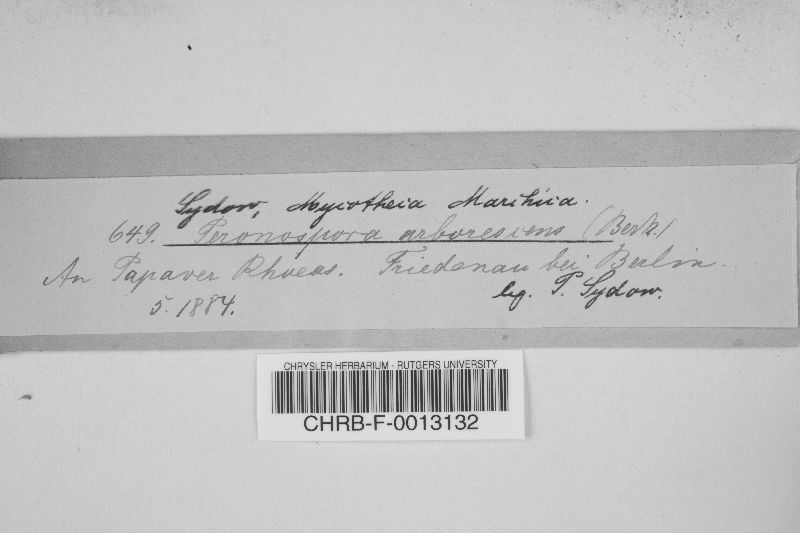 Sydow, Mycotheca Marchica.
649. Peronospora arborescens (Berk.)
An Papaver Rhoeas. Friedenau bei Berlin.
5. 1884. lg. P. Sydow.
CHRYSLER HERBARIUM - RUTGERS UNIVERSITY
CHRB-F-0013132